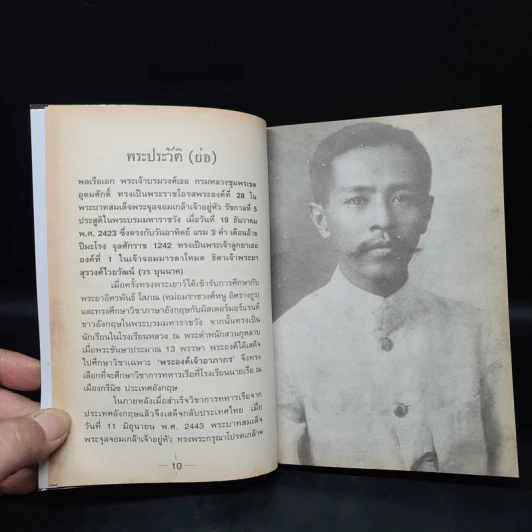 พระประวัติ (ย่อ)
พลเรือเอก พระเจ้าบรมวงศ์เธอ กรมหลวงชุมพรเขต
อุดมศักดิ์ ทรงเป็นพระราชโอรสพระองค์ที่ 28 ใน
พระบาทสมเด็จพระจุลจอมเกล้าเจ้าอยู่หัว รัชกาลที่ 5
ประสูติในพระบรมมหาราชวัง เมื่อวันที่ 19 ธันวาคม
พ.ศ. 2423 ซึ่งตรงกับวันอาทิตย์ แรม 3 ค่ำ เดือนอ้าย
ปีมะโรง จุลศักราช 1242 ทรงเป็นพระเจ้าลูกยาเธอ
องค์ที่ 1 ในเจ้าจอมมารดาโหมด ธิดาเจ้าพระยา
สุรวงศ์ไวยวัฒน์ (วร บุนนาค)
เมื่อครั้งทรงพระเยาว์ได้เข้ารับการศึกษากับ
พระยาอิศรพันธ์ โสภณ (หม่อมราชวงศ์หนู อิศรางกูร)
และทรงศึกษาวิชาภาษาอังกฤษกับมิสเตอร์มอร์แรนท์
ชาวอังกฤษในพระบรมมหาราชวัง จากนั้นทรงเป็น
นักเรียนในโรงเรียนหลวง ณ พระตำหนักสวนกุหลาบ
เมื่อพระชันษาประมาณ 13 พรรษา พระองค์ได้เสด็จ
ไปศึกษาวิชาเฉพาะ ‘พระองค์เจ้าอาภากร’ จึงทรง
เลือกที่จะศึกษาวิชาการทหารเรือที่โรงเรียนนายเรือ ณ
เมืองกรีนิช ประเทศอังกฤษ
ในภายหลังเมื่อสำเร็จวิชาการทหารเรือจาก
ประเทศอังกฤษแล้วจึงเสด็จกลับประเทศไทย เมื่อ
วันที่ 11 มิถุนายน พ.ศ. 2443 พระบาทสมเด็จ
พระจุลจอมเกล้าเจ้าอยู่หัว ทรงพระกรุณาโปรดเกล้าฯ
10